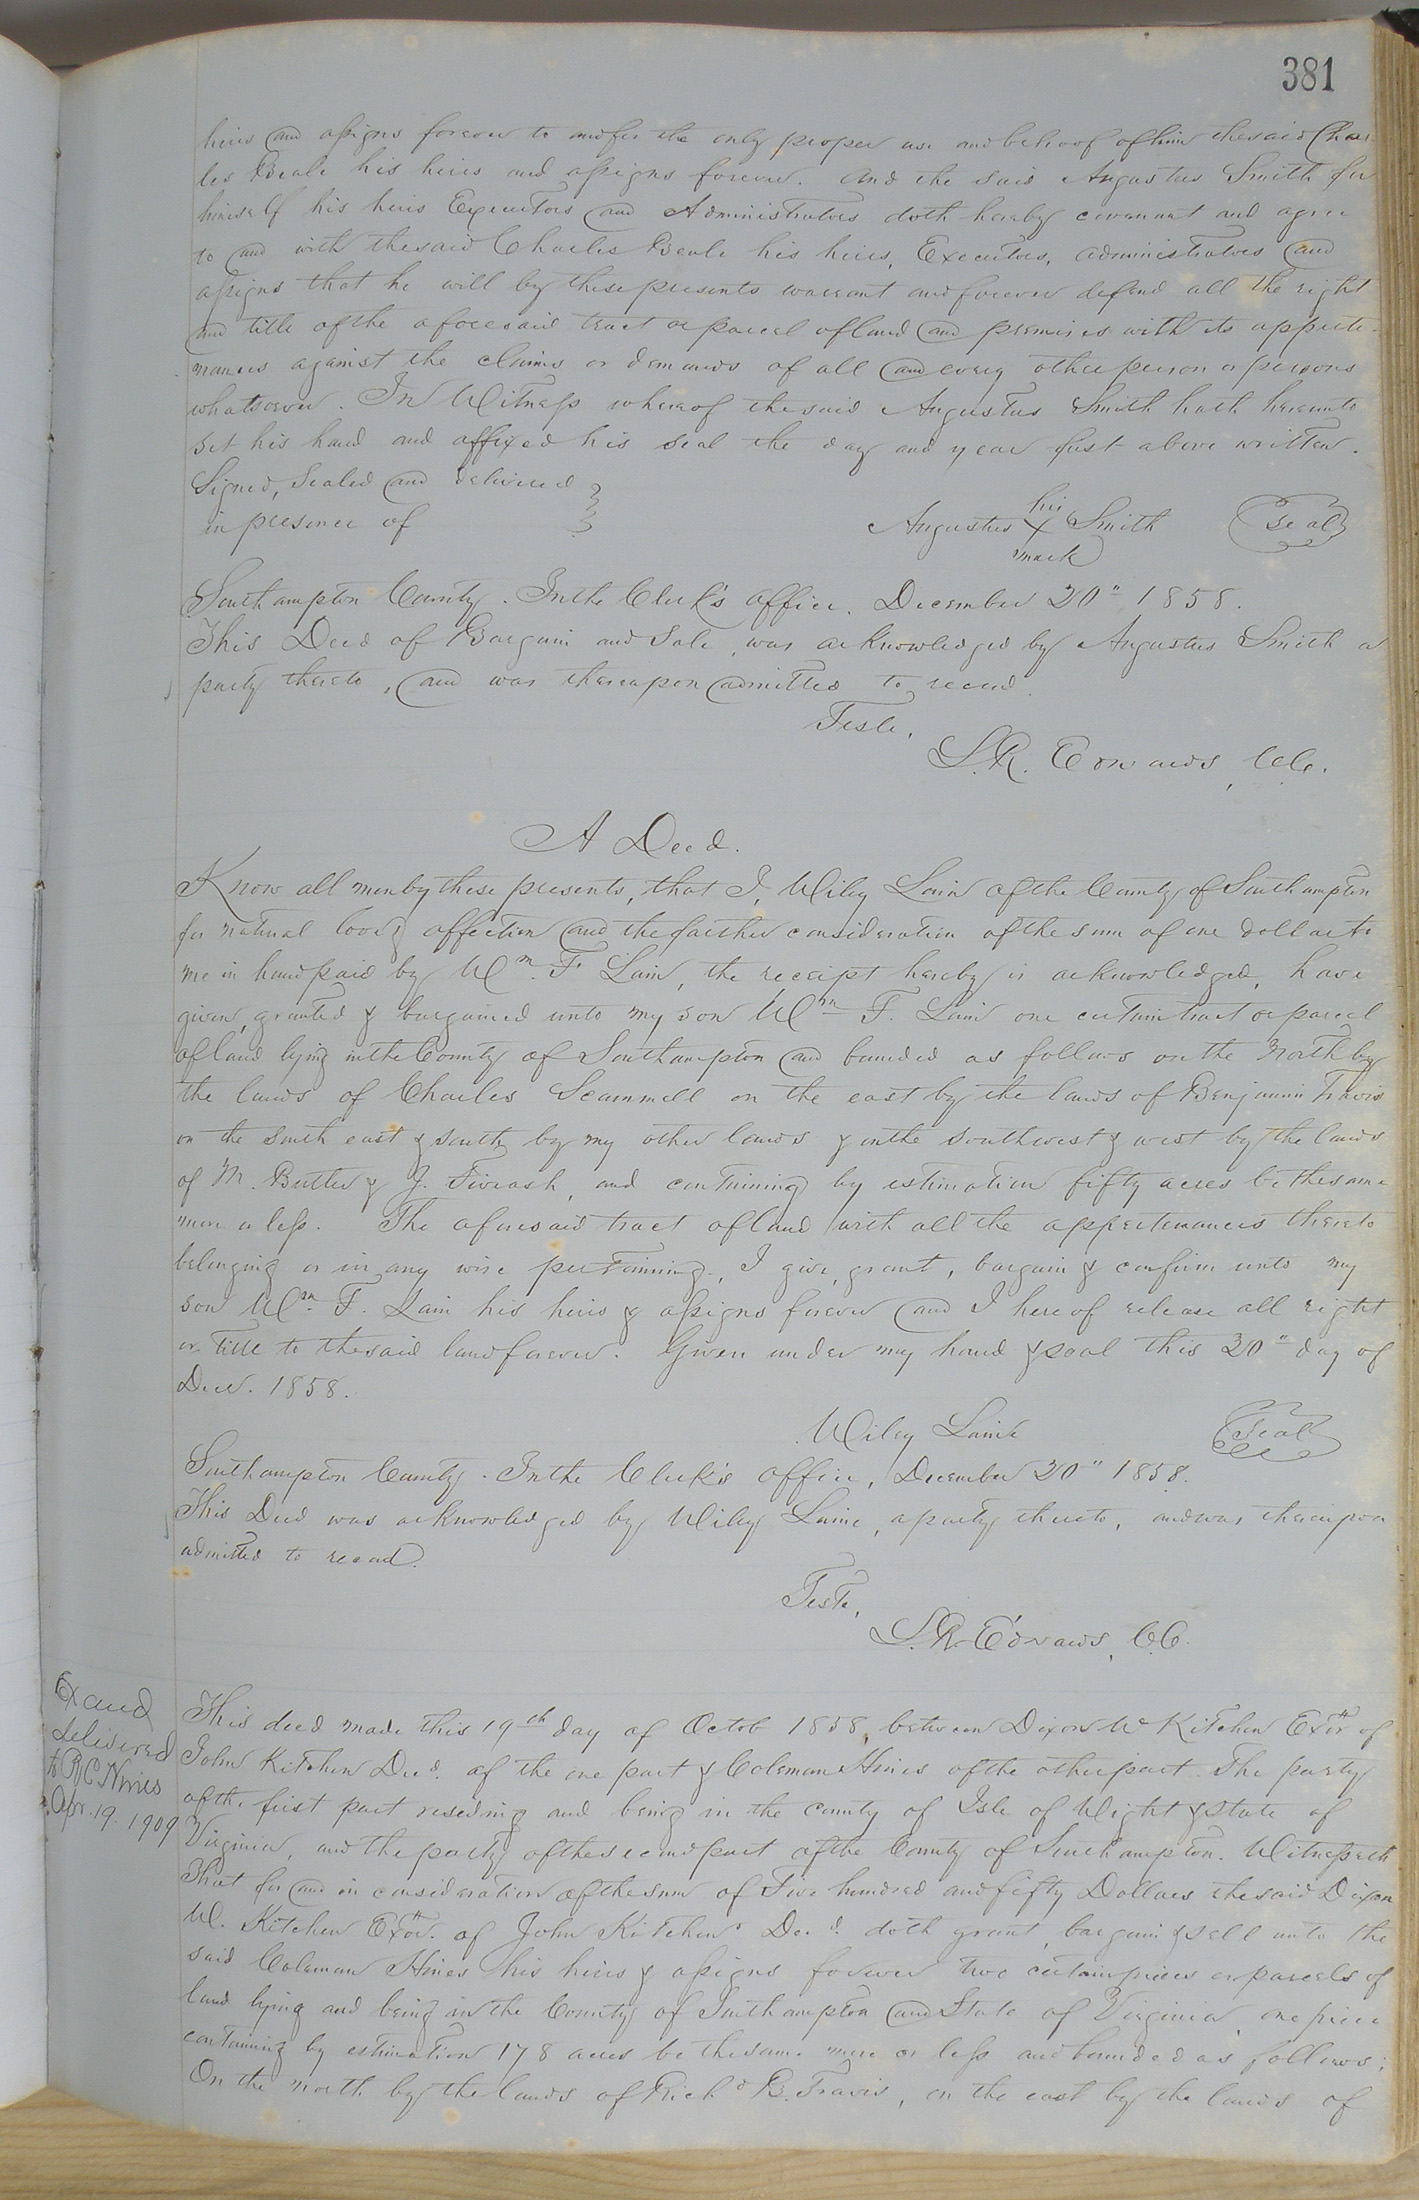 381
heirs and assigns forever to and for the only proper use and behoof of him the said Char
les Beale his heirs and assigns forever. And the said Augustus Smith for
himself his heirs Executors and Administrators doth hereby covenant and agree
to and with the said Charles Beale his heirs, Executors, administrators and
assigns that he will by these presents warrant and forever defend all the right
and title of the aforesaid tract or parcel of land and premises with its appurte-
nances against the claims or demands of all and every other person or persons
whatsoever. In Witness whereof the said Augustus Smith hath hereunto
set his hand and affixed his seal the day and year first above written.
Signed, Sealed and delivered
in presence of
his
Augustus X Smith Seal
mark
Southampton County. In the Clerk's office. December 20" 1858.
This Deed of Bargain and Sale, was acknowledged by Augustus Smith a
party thereto, and was thereupon admitted to record.
Teste,
L.R. Edwards, CC.
A Deed.
Know all men by these presents, that I, Wiley Lain of the County of Southampton
for natural love & affection and the farther consideration of the sum of one dollar to
me in hand paid by Wm. F. Lain, the receipt hereby is acknowledged, have
given, granted & bargained unto my son Wm. F. Lain one certain tract or parcel
of land lying in the County of Southampton and bounded as follows on the North by
the lands of Charles Scammell on the east by the lands of Benjamin Travis
on the south east & south by my other lands & on the southwest & west by the lands
of M. Butler & J. and containing by estimation fifty acres be the same
more or less. The aforesaid tract of land with all the appurtenances thereto
belonging or in any wise pertaining, I give, grant, bargain & confirm unto my
son Wm. F. Lain his heirs & assigns forever and I hereof release all right
or title to the said land forever. Given under my hand & seal this 20" day of
Decr. 1858.
Wiley Laine Seal
Southampton County. In the Clerk's office, December 20" 1858.
This Deed was acknowledged by Wiley Laine, a party thereto, and was thereupon
admitted to record.
Teste,
L.R. Edwards, C.C.
Ex and
delivered
to
Apr. 19. 1909
This deed made this 19th day of Octob 1858, between Dixon W Kitchen Extr of
John Kitchen Decd. of the one part & Coleman Hines of the other part. The party
of the first part reseding and being in the county of Isle of Wight & state of
Virginia, and the party of the second part of the County of Southampton. Witnesseth
That for and in consideration of the sum of Five hundred and fifty Dollars the said Dixon
W. Kitchen Extr. of John Kitchen Decd. doth grant, bargain & sell unto the
said Coleman Hines his heirs & assigns forever two certain pieces or parcels of
land lying and being in the County of Southampton and State of Virginia, one piece
containing by estimation 178 acres be the same more or less and bounded as follows;
On the north by the lands of Richd B. Travis, on the east by the lands of